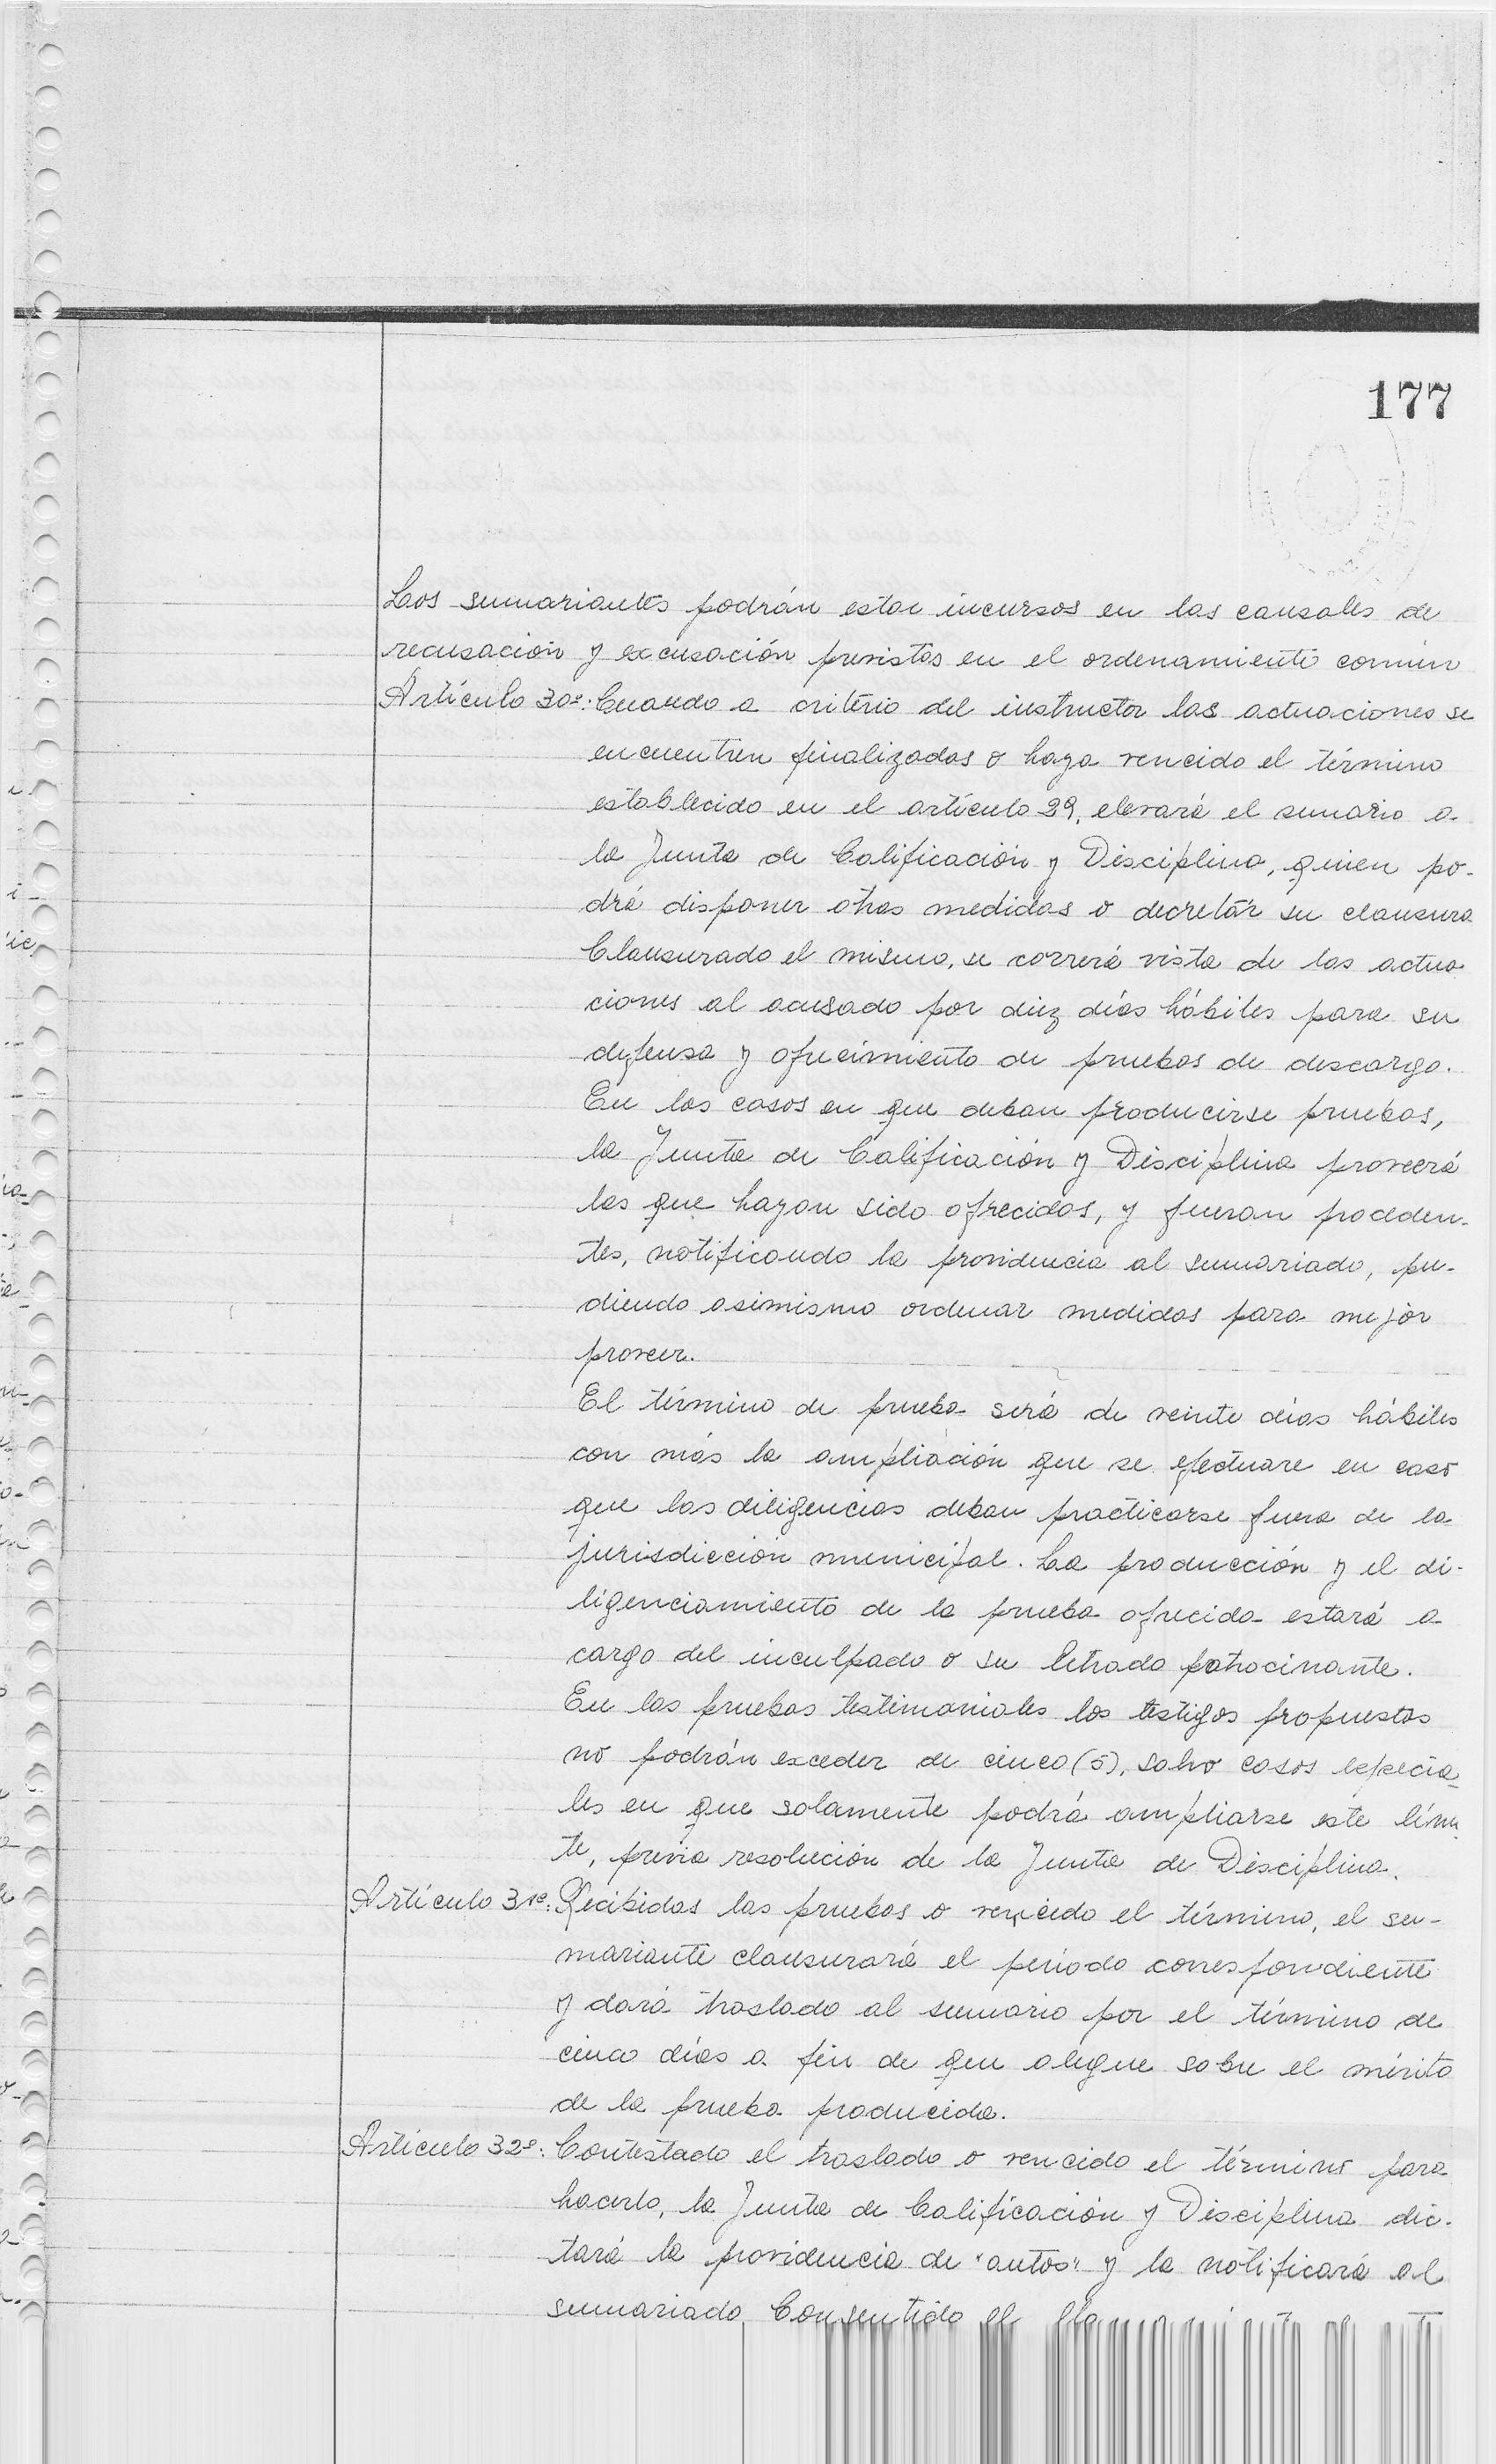 177
Los sumariantes podrán estar incursos en las causales de
recusación y excusación previstas en el ordenamiento común
Artículo 30º: Cuando a criterio del instructor las actuaciones se
encuentren finalizadas o haya vencido el término
establecido en el artículo 29, elevará el sumario a
la Junta de Calificación y Disciplina, quien po-
drá disponer otras medidas o decretar su clausura
Clausurado el mismo, se correrá vista de las actua
ciones al acusado por diez días hábiles para su
defensa y ofrecimiento de pruebas de descargo.
En los casos en que deban producirse pruebas,
la Junta de Calificación y Disciplina proveerá
las que hayan sido ofrecidas, y fueran proceden-
tes, notificando la providencia al sumariado, pu-
diendo asimismo ordenar medidas para mejor
proveer.
El término de prueba será de veinte días hábiles
con más la ampliación que se efectuare en caso
que las diligencias deban practicarse fuera de la
jurisdicción municipal. La producción y el di-
ligenciamiento de la prueba ofrecida estará a
cargo del inculpado o su letrado patrocinante.
En las pruebas testimoniales los testigos propuestos
no podrán exceder de cinco (5), salvo casos especia-
les en que solamente podrá ampliarse este lími
te, previa resolución de la Junta de Disciplina.
Artículo 31º: Recibidas las pruebas o vencido el término, el su-
mariante clausurará el período correspondiente
y dará traslado al sumario por el término de
cinco días a fin de que alegue sobre el mérito
de la prueba producida.
Artículo 32º: Contestado el traslado o vencido el término para
hacerlo, la Junta de Calificación y Disciplina dic-
tará la providencia de "autos" y la notificará al
sumariado. Consentido el